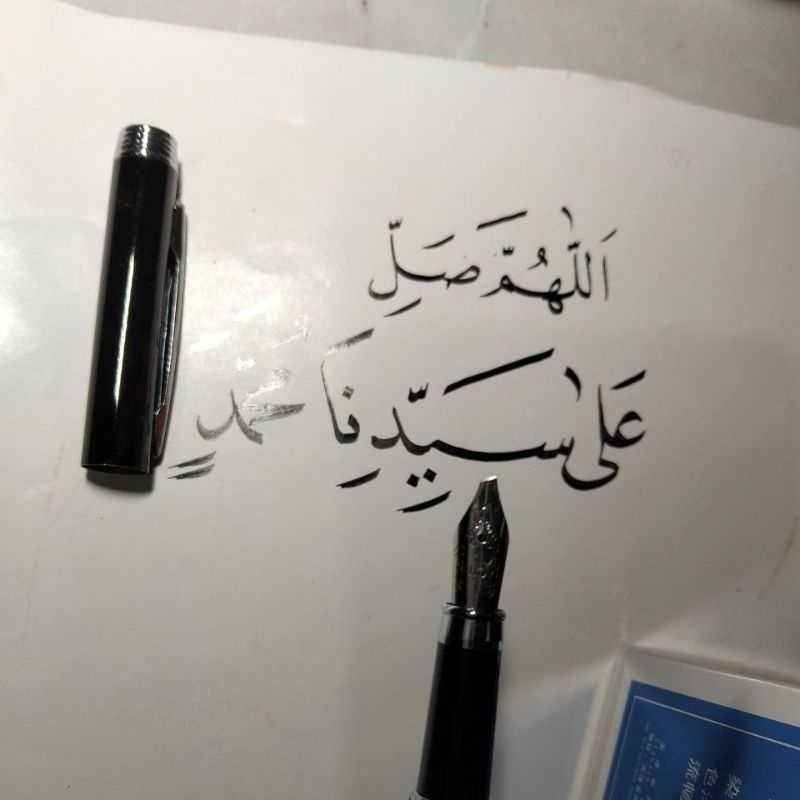 اَللّٰهُمَّ صَلِّ
عَلٰى سَيِّدِنَا مُحَمَّدٍ